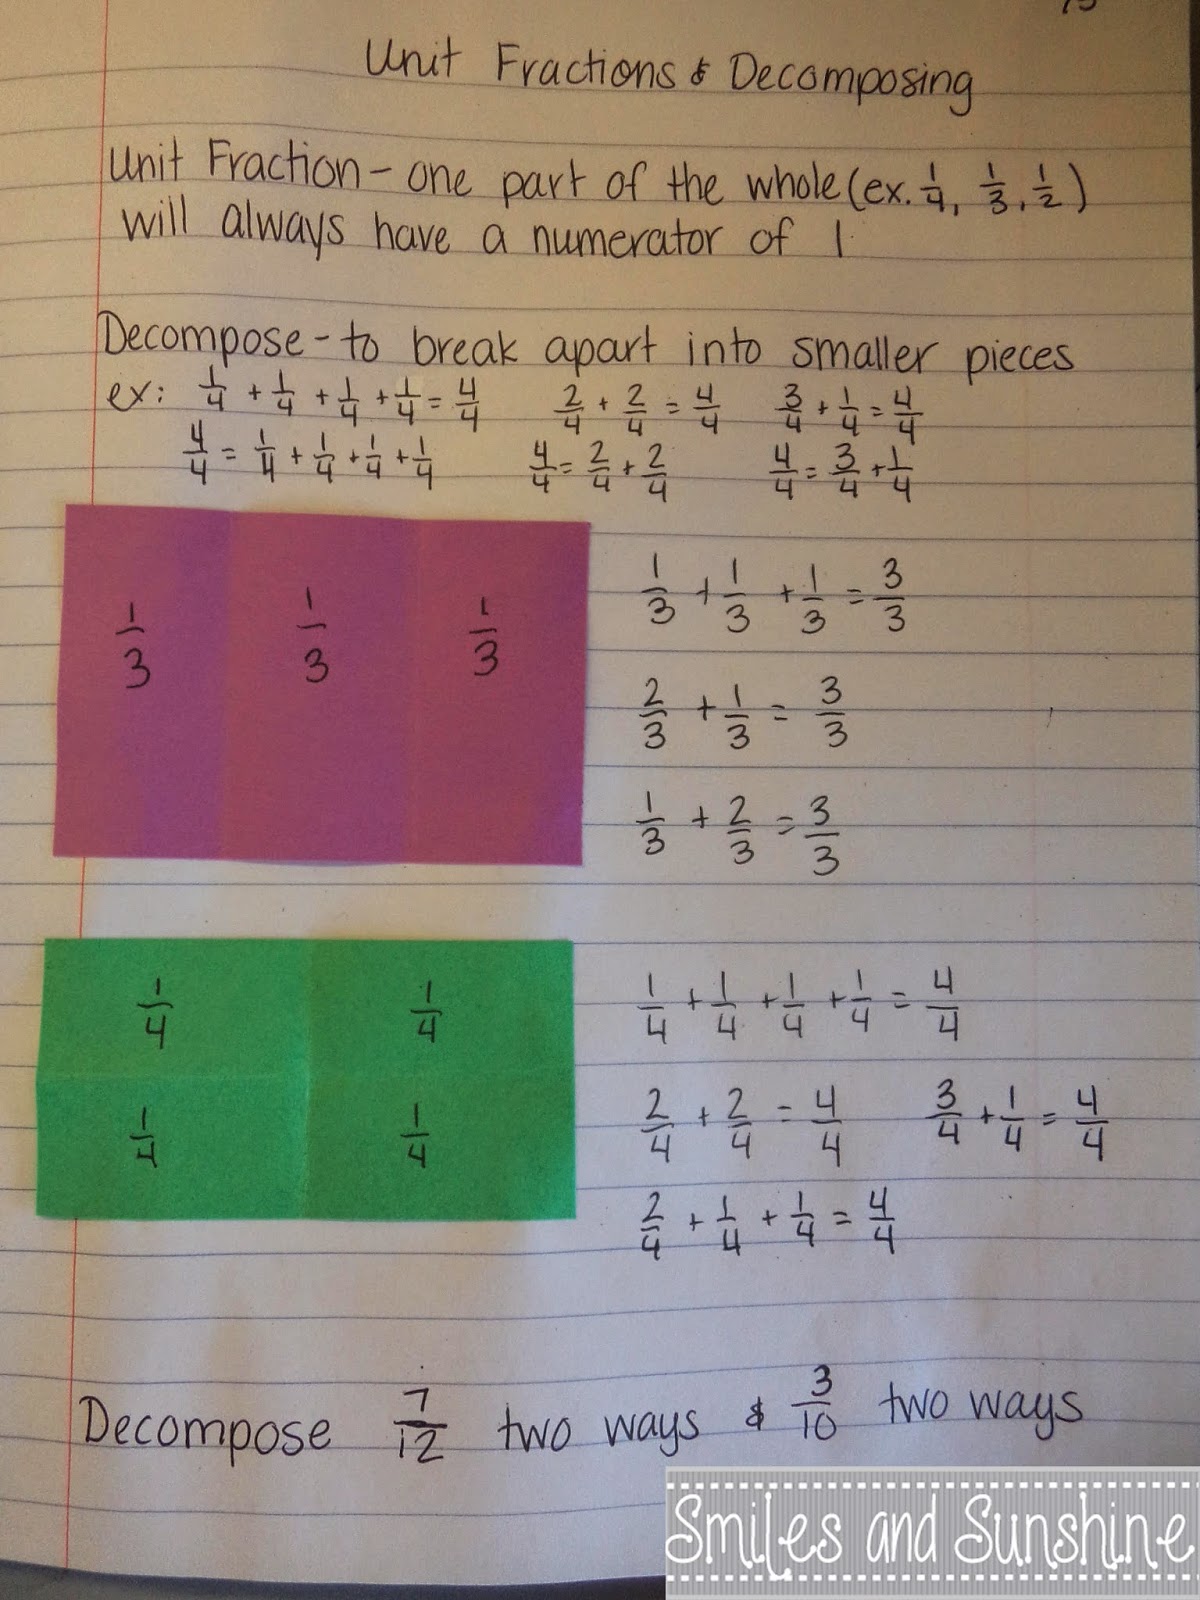 Unit Fractions & Decomposing
Unit Fraction - one part of the whole (ex. 1/4, 1/3, 1/2)
will always have a numerator of 1
Decompose - to break apart into smaller pieces
ex: 1/4 + 1/4 + 1/4 + 1/4 = 4/4 2/4 + 2/4 = 4/4 3/4 + 1/4 = 4/4
4/4 = 1/4 + 1/4 + 1/4 + 1/4 4/4 = 2/4 + 2/4 4/4 = 3/4 + 1/4
1/3 1/3 1/3
1/3 + 1/3 + 1/3 = 3/3
2/3 + 1/3 = 3/3
1/3 + 2/3 = 3/3
1/4 1/4
1/4 1/4
1/4 + 1/4 + 1/4 + 1/4 = 4/4
2/4 + 2/4 = 4/4 3/4 + 1/4 = 4/4
2/4 + 1/4 + 1/4 = 4/4
Decompose 7/12 two ways & 3/10 two ways
Smiles and Sunshine